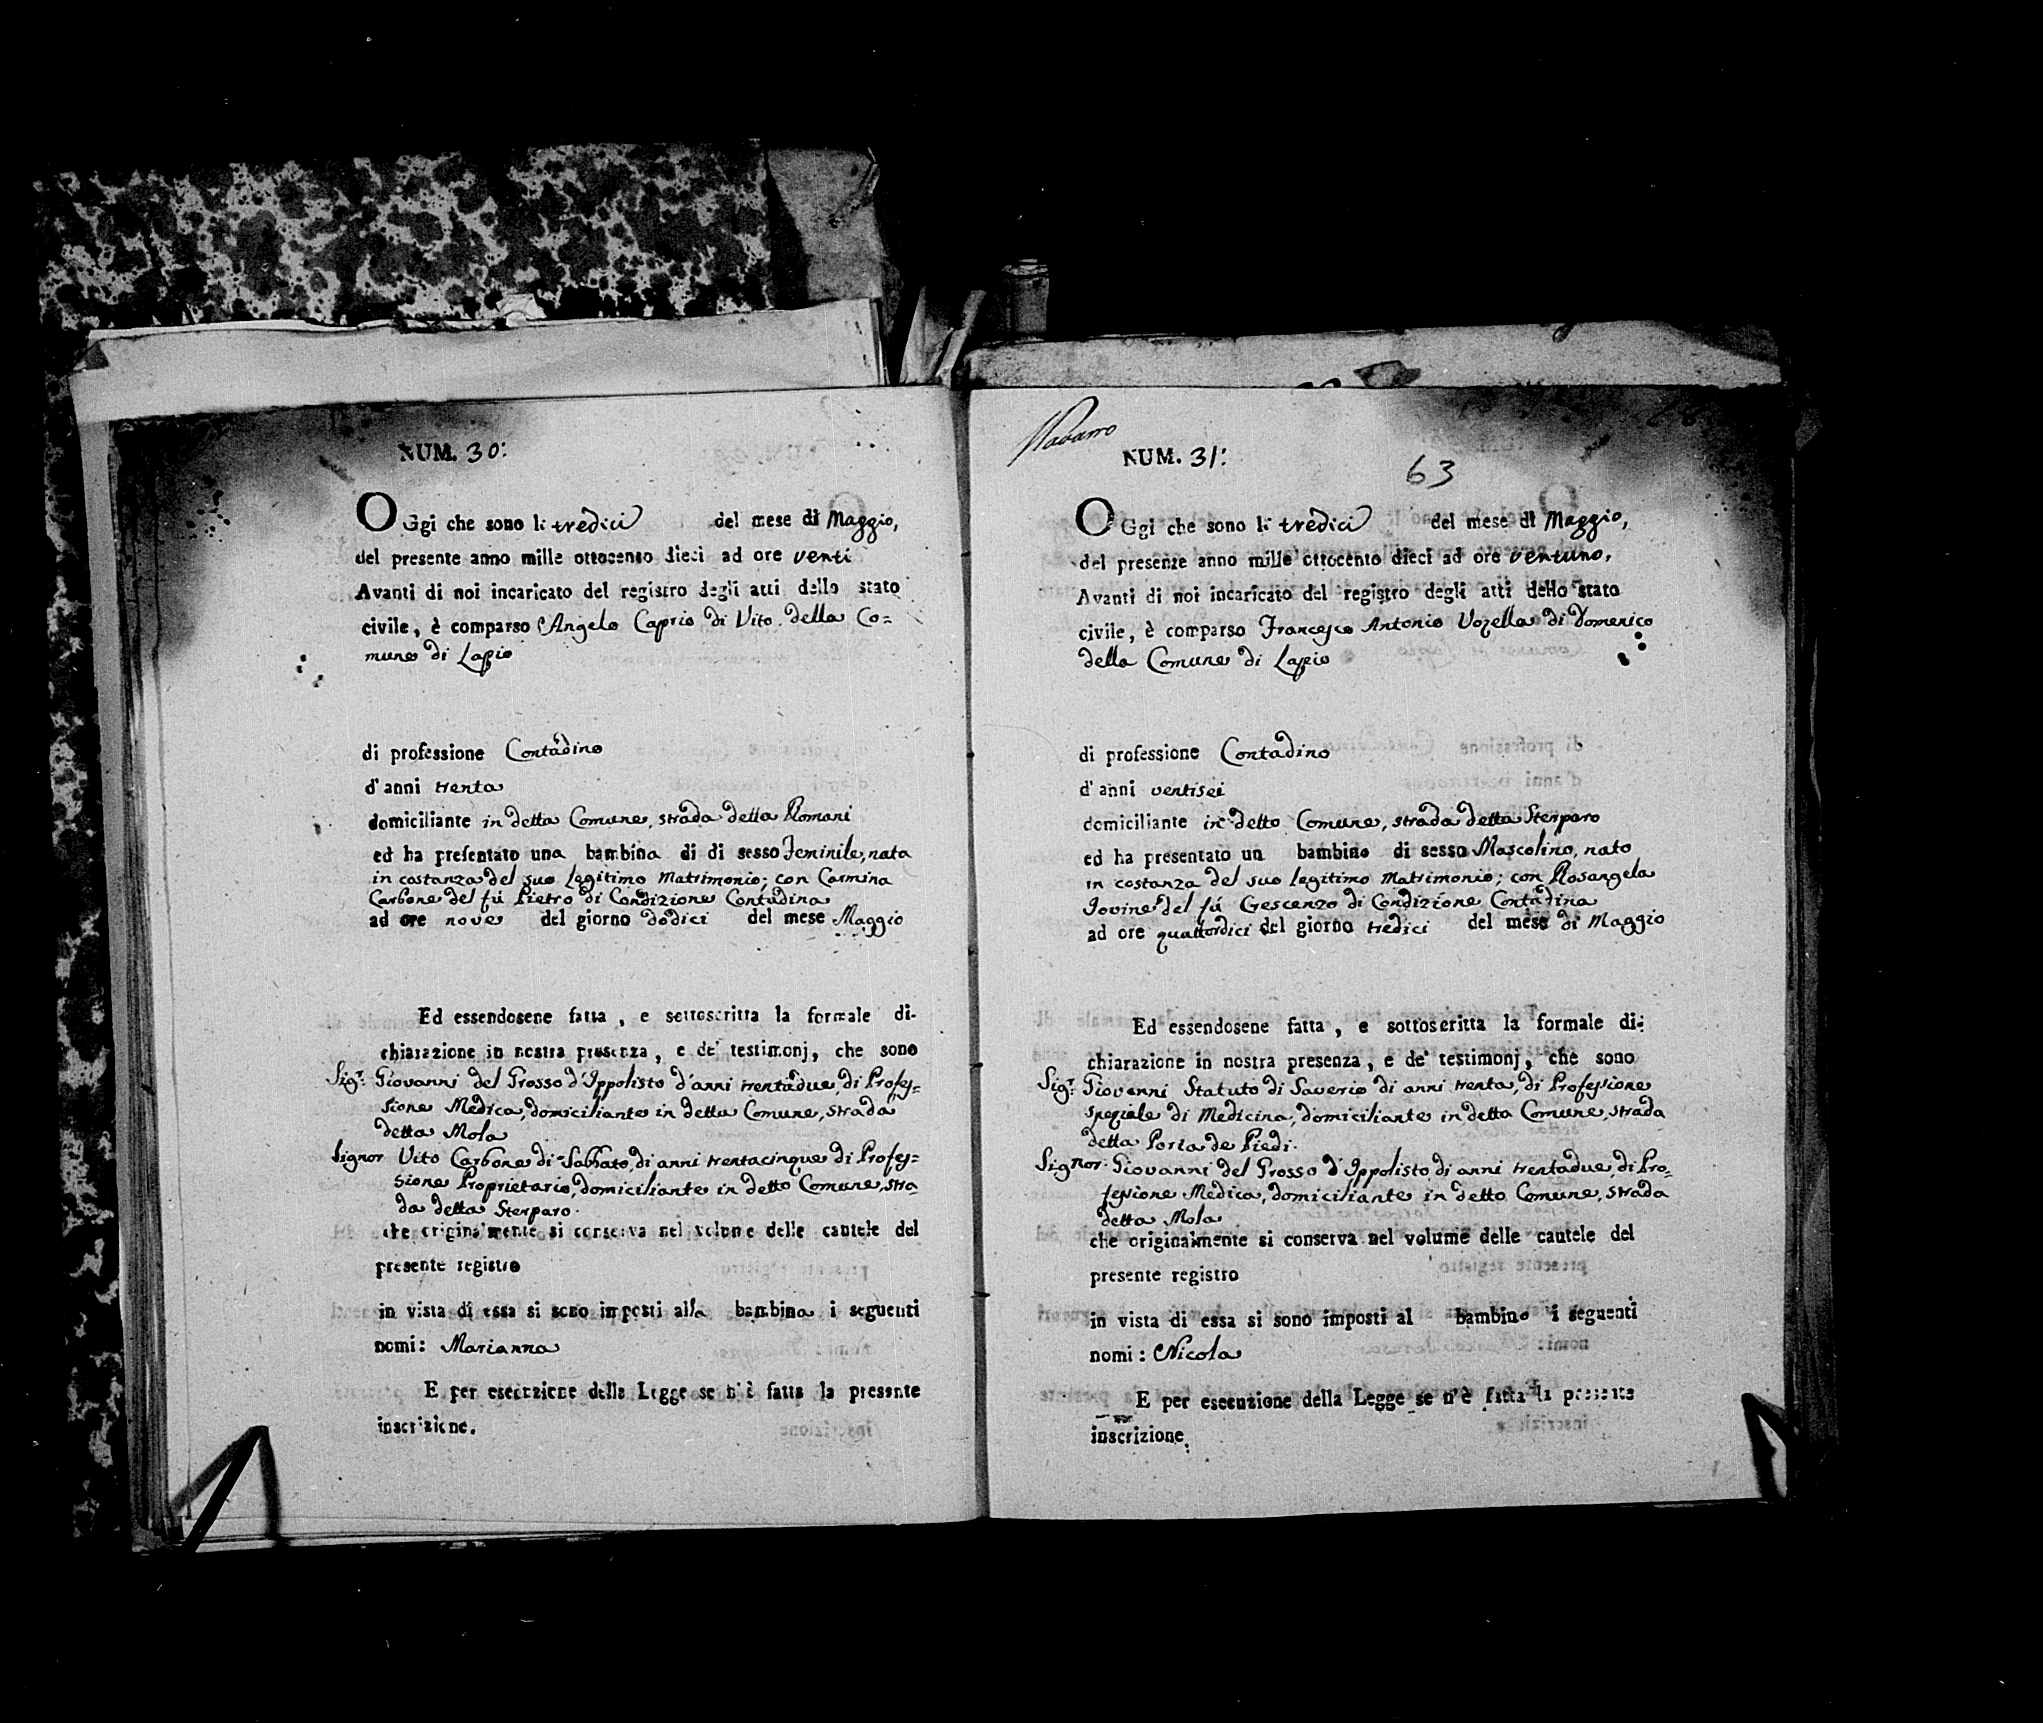 NUM. 30:
OGgi che sono li tredici del mese di Maggio,
del presente anno mille ottocento dieci ad ore venti
Avanti di noi incaricato del registro degli atti dello stato
civile, è comparso Angelo Caprio di Vito della Co=
mune di Lapio
di professione Contadino
d'anni trenta
domiciliante in detta Comune, strada detta Romani
ed ha presentato una bambina di di sesso Feminile, nata
in costanza del suo legitimo Matrimonio; con Carmina
Carbone del fú Pietro di Condizione Contadina
ad ore nove del giorno dodici del mese Maggio
Ed essendosene fatta, e sottoscritta la formale di-
chiarazione in nostra presenza, e de' testimonj, che sono
Sigr. Giovanni del Grosso d'Ippolisto d'anni trentadue, di Profes=
sione Medica, domiciliante in detta Comune, strada
detta Mola
Signor Vito Carbone di Sabbato, di anni trentacinque di Profes=
sione Proprietario, domiciliante in detto Comune, stra=
da detta Sterparo.
che originalmente si conserva nel volume delle cautele del
presente registro
in vista di essa si sono imposti alla bambina i seguenti
nomi: Marianna
E per esecuzione della Legge se n'è fatta la presente
inscrizione.
Navarro
NUM. 31:
63
OGgi che sono li tredici del mese di Maggio,
del presente anno mille ottocento dieci ad ore ventuno,
Avanti di noi incaricato del registro degli atti dello stato
civile, è comparso Francesco Antonio Vozella di Domenico
della Comune di Lapio
di professione Contadino
d'anni ventisei
domiciliante in detto Comune, strada detta Sterparo
ed ha presentato un bambino di sesso Mascolino, nato
in costanza del suo legitimo Matrimonio; con Rosangela
Iovine del fú Crescenzo di Condizione Contadina
ad ore quattordici del giorno tredici del mese di Maggio
Ed essendosene fatta, e sottoscritta la formale di-
chiarazione in nostra presenza, e de' testimonj, che sono
Sigr. Giovanni Statuto di Saverio di anni trenta, di Professione
speziale di Medicina, domiciliante in detto Comune, strada
detta Porta de Piedi.
Signor Giovanni del Grosso d'Ippolisto, di anni trentadue, di Pro=
fessione Medica, domiciliante in detto Comune, strada
detta Mola
che originalmente si conserva nel volume delle cautele del
presente registro
in vista di essa si sono imposti al bambino i seguenti
nomi: Nicola
E per esecuzione della Legge se n'è fatta la presente
inscrizione.